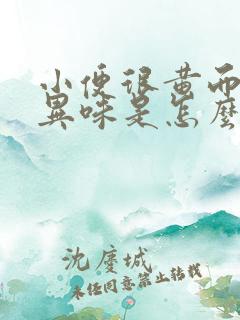 小便很黄而
異味是怎麼
沈慶城
未经同意禁止转载